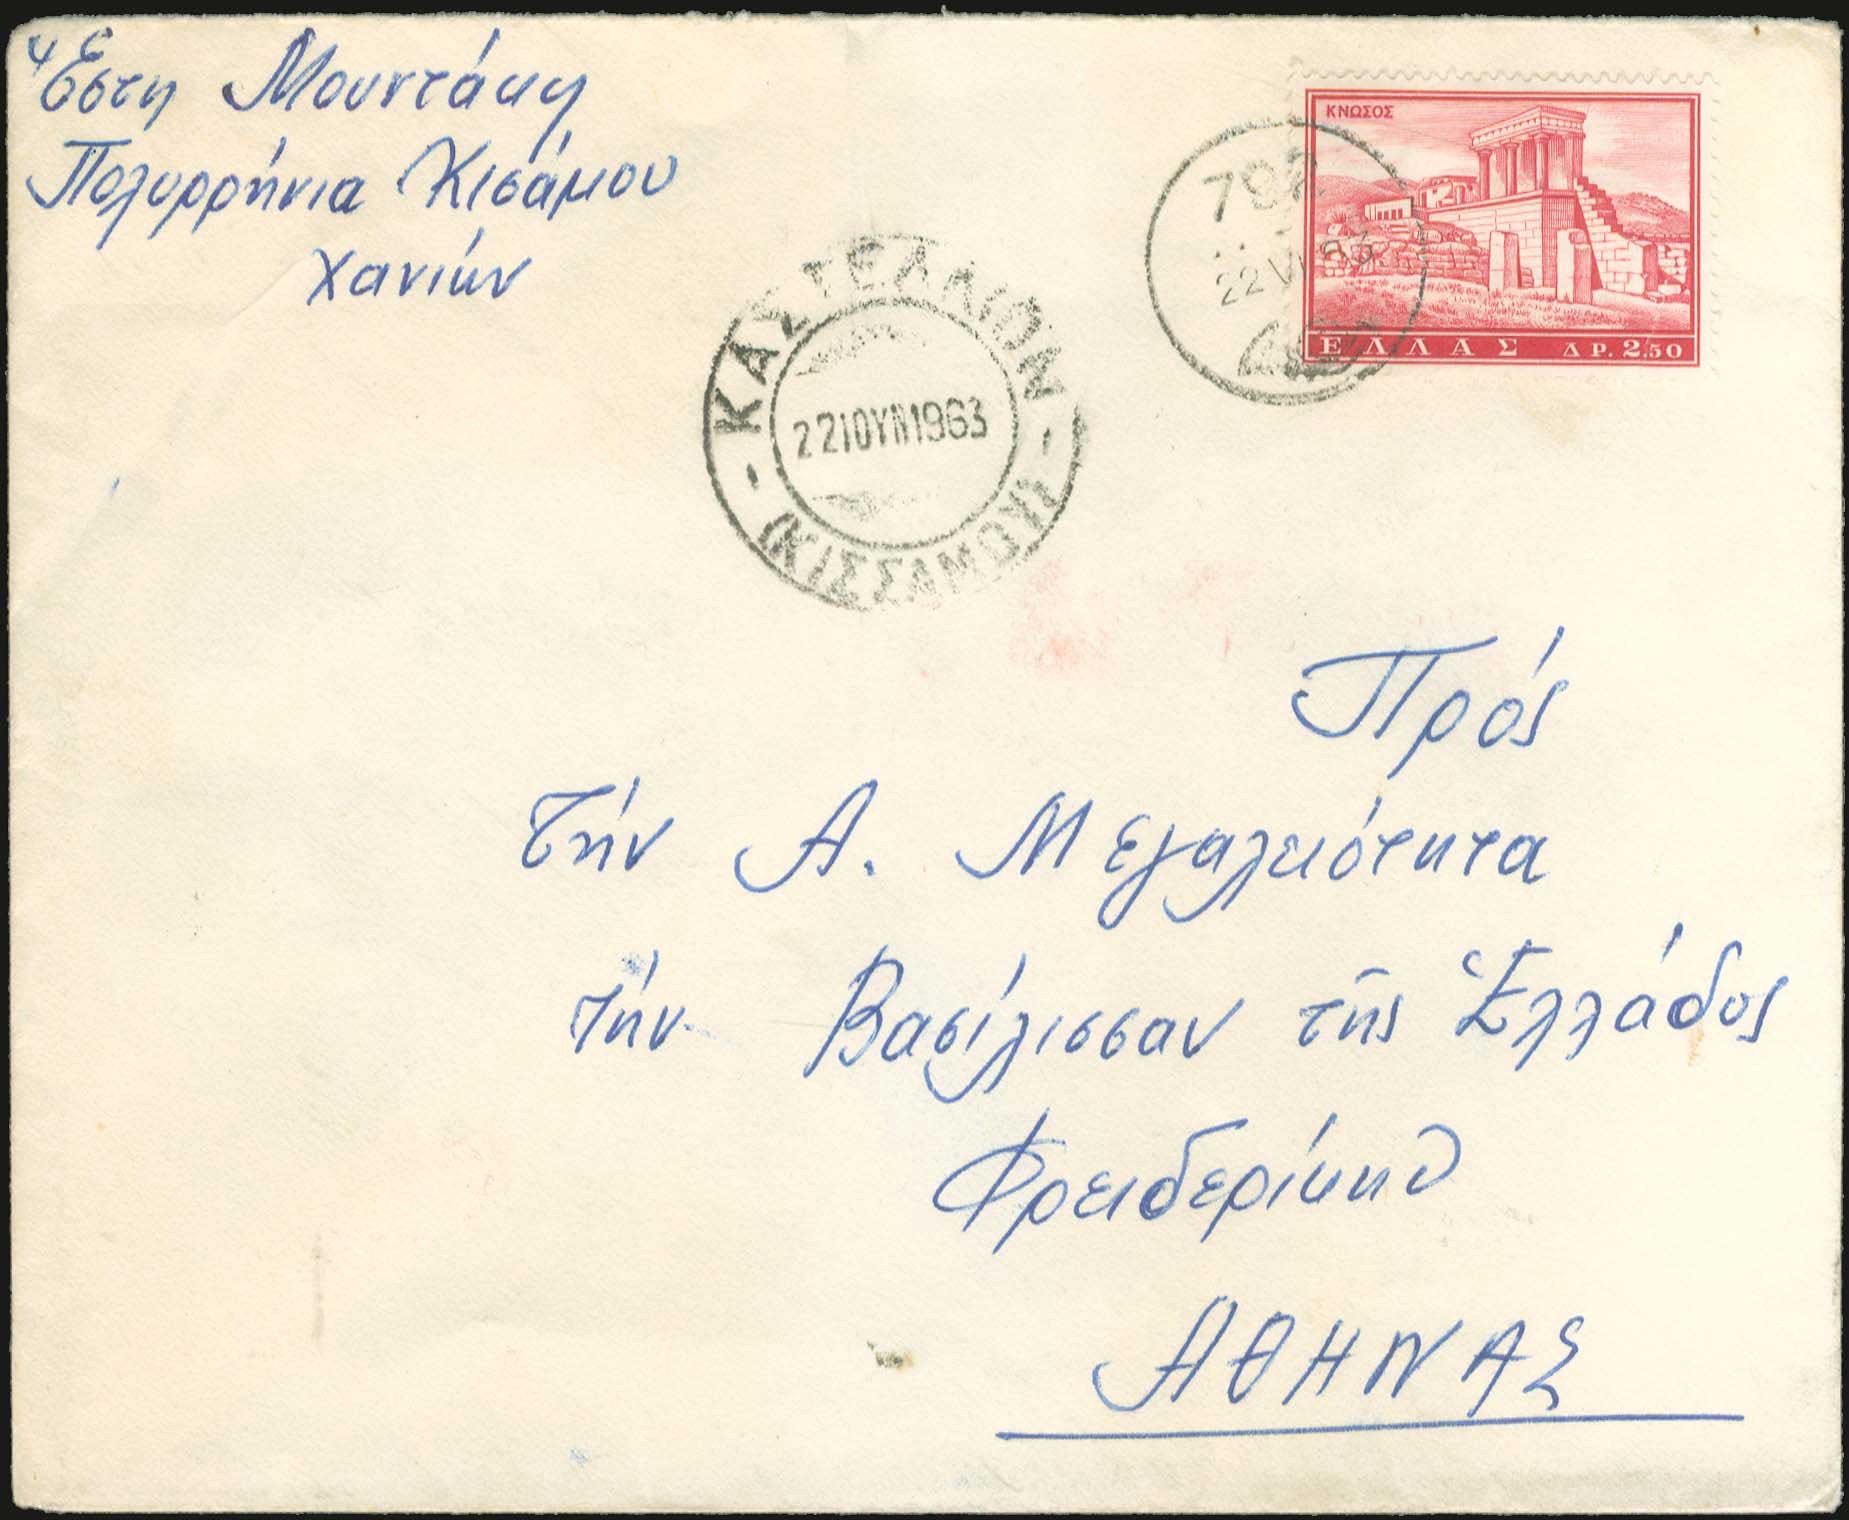 Ἔστη Μουντάκη
Πολυρρήνια Κισάμου
Χανιών
ΚΝΩΣΟΣ
ΕΛΛΑΣ ΔΡ. 2,50
792
22 VI 63
ΚΑΣΤΕΛΛΙΩΝ
22 ΙΟΥΝ 1963
(ΚΙΣΣΑΜΟΥ)
Πρός
Τήν Α. Μεγαλειότητα
τήν Βασίλισσαν τῆς Ἑλλάδος
Φρειδερίκην
ΑΘΗΝΑΣ